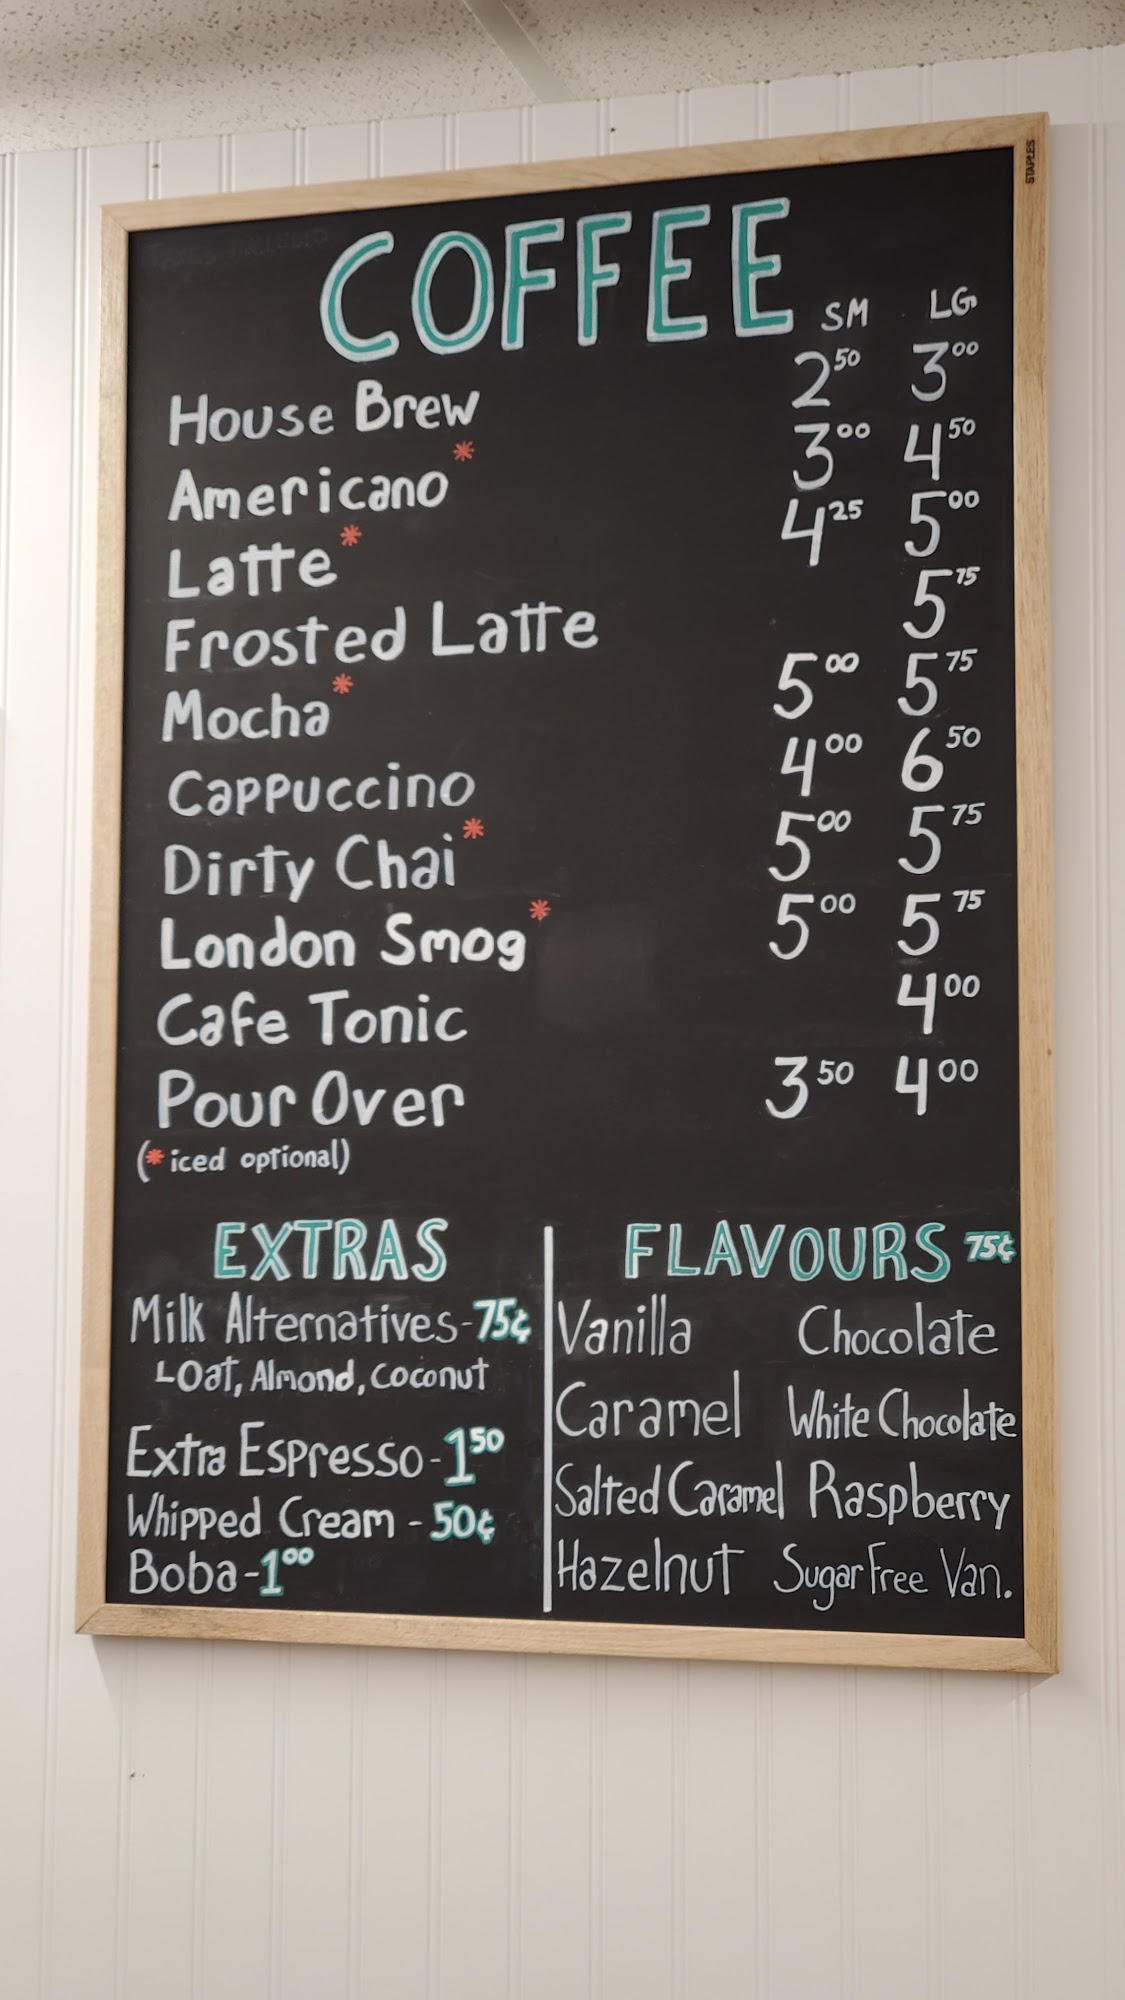 STAPLES
COFFEE
SM LG
House Brew 2.50 3.00
Americano* 3.00 4.50
Latte* 4.25 5.00
Frosted Latte 5.75
Mocha* 5.00 5.75
Cappuccino 4.00 6.50
Dirty Chai* 5.00 5.75
London Smog* 5.00 5.75
Cafe Tonic 4.00
Pour Over 3.50 4.00
(* iced optional)
EXTRAS
Milk Alternatives - 75¢
Oat, Almond, Coconut
Extra Espresso - 1.50
Whipped Cream - 50¢
Boba - 1.00
FLAVOURS 75¢
Vanilla Chocolate
Caramel White Chocolate
Salted Caramel Raspberry
Hazelnut Sugar Free Van.